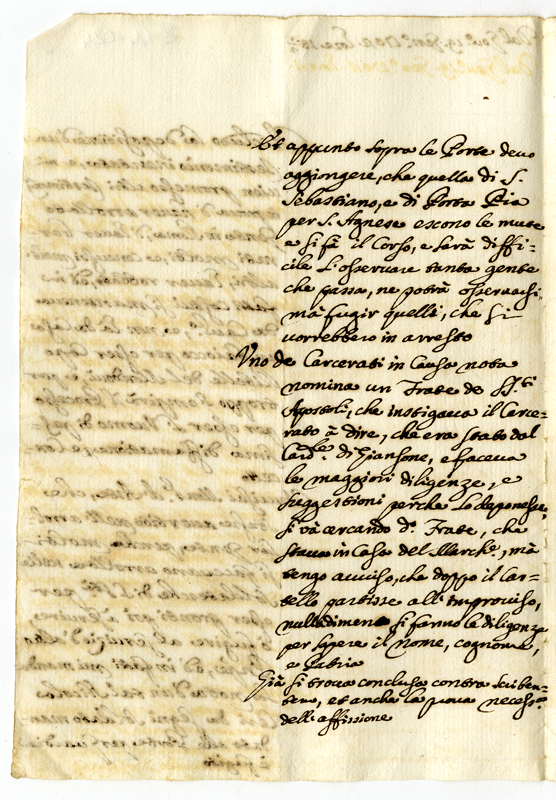 Et appunto sopra le Porte devo
aggiongere, che quella di S.
Sebastiano, e di Porta Pia
per S. Agnese escono le mute
e si fà il Corso, e sarà diffi=
cile l'osservare tanta gente
che passa, ne potrà osservarsi,
mà fugir quelli, che si
vorrebbero in arresto
Uno de Carcerati in Causa nota
nomina un Frate de SS.ti
Apostoli, che instigava il Carce=
rato à dire, che era stato dal
Card.le di Giansone, e faceva
le maggiori diligenze, e
suggestioni perche lo deponesse,
si và cercando d.o Frate, che
stava in Casa del March.e, mà
tengo avviso, che doppo il Car=
tello partisse all'improviso,
nulladimeno si fanno le diligenze
per sapere il nome, cognome,
e Patria
Già si trova conclusa contra scriben=
tem, et anche la prova necess.a
dell'affissione